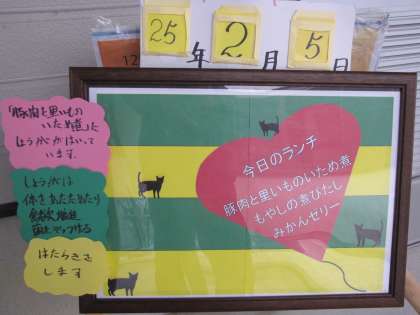 25年2月5日
12
「豚肉と里いもの
いため煮」に
しょうががはいって
います。
しょうがは
体をあたためたり
食欲増進
はたらきを
します
今日のランチ
豚肉と里いものいため煮
もやしの煮びたし
みかんゼリー